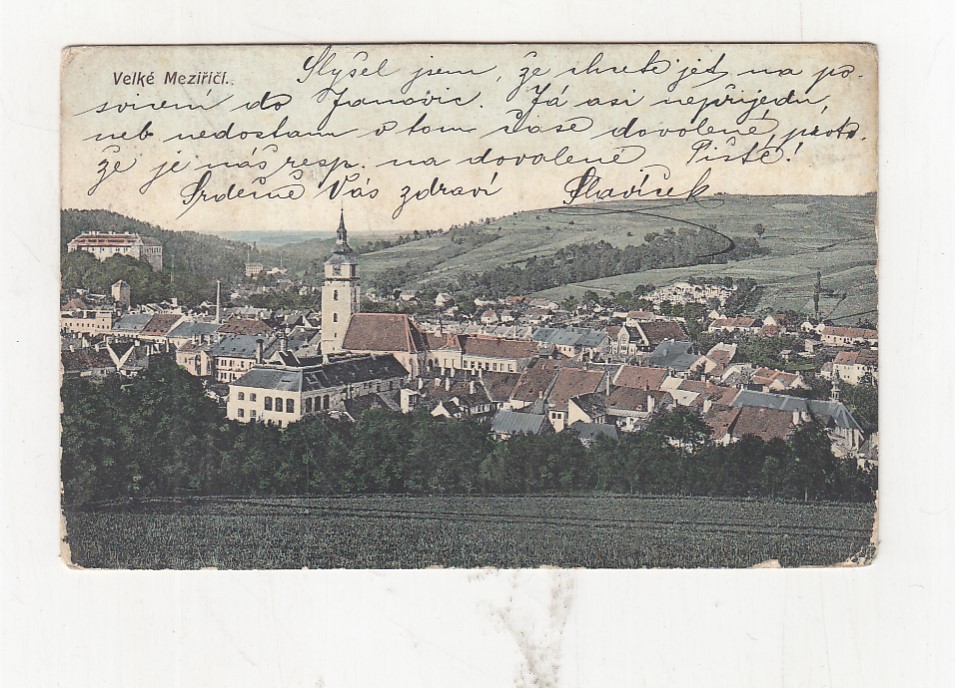 Velké Meziříčí.
Slyšel jsem, že chcete jet na po-
svícení do Janovic. Já asi nepřijedu,
neb nedostanu v tom čase dovolené, proto-
že je náš resp. na dovolené Pište!
Srdečně Vás zdraví Slavíček